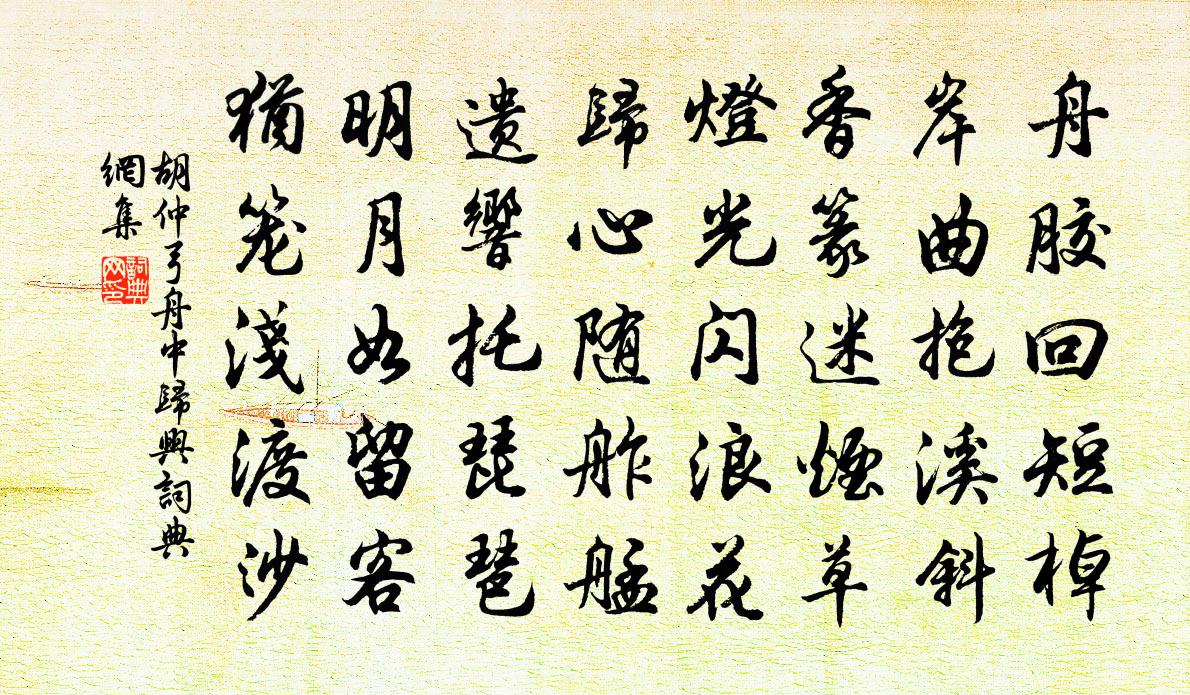 舟胶回短棹
岸曲抱溪斜
香篆迷煙草
燈光闪浪花
歸心随舴艋
遗響托琵琶
明月如留客
猶笼淺渡沙
胡仲弓舟中歸興詞典
網集
詞典
网印